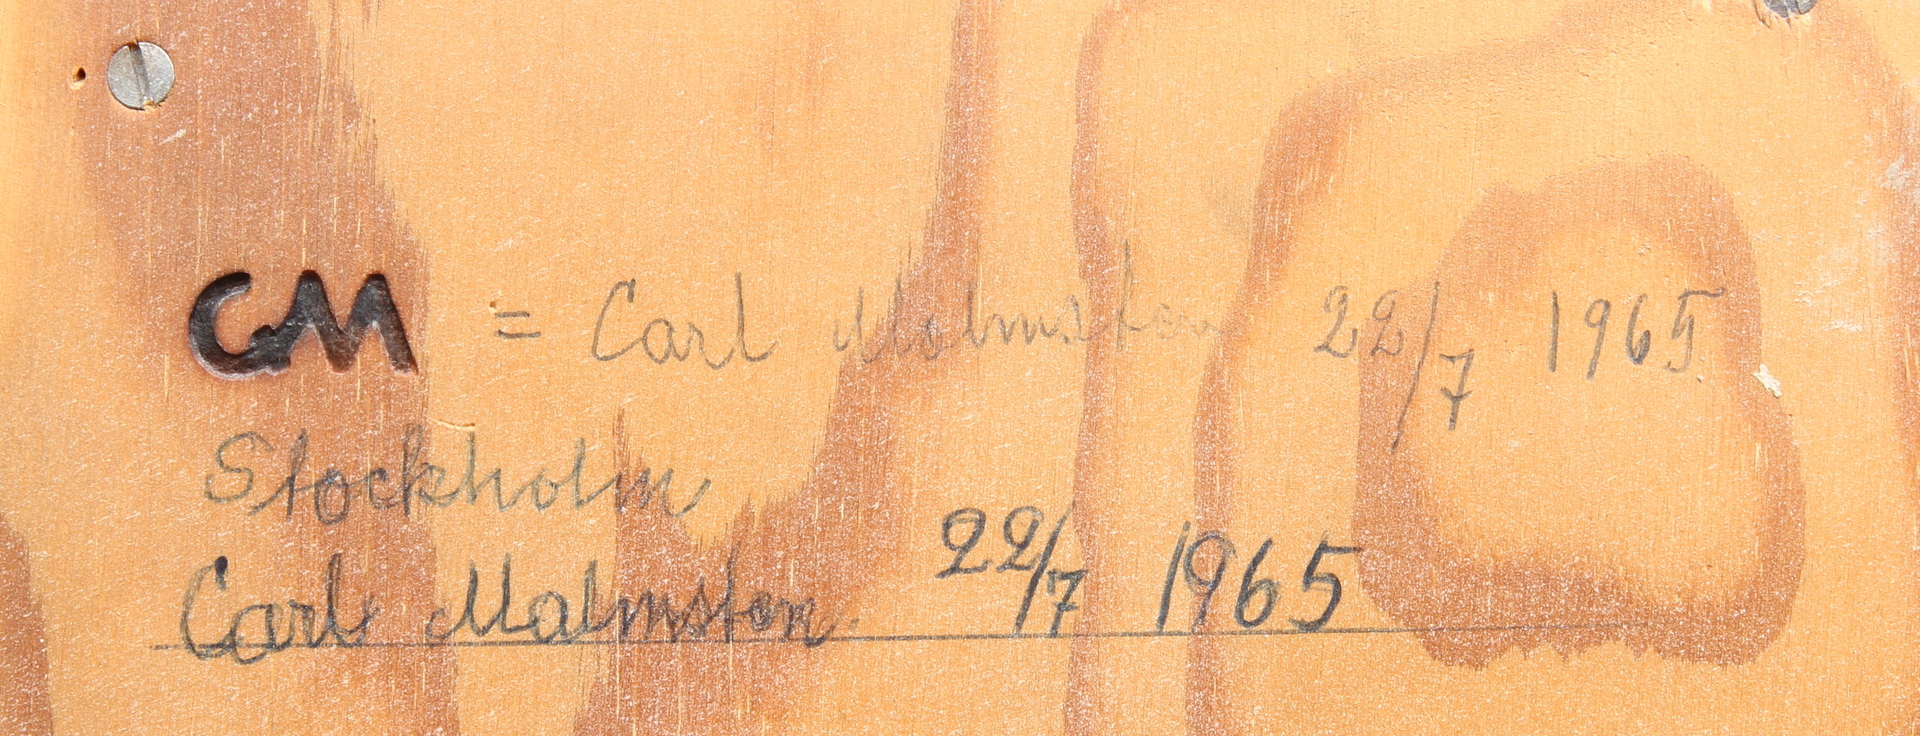 CM = Carl Malmsten 22/7 1965
Stockholm
Carl Malmsten. 22/7 1965